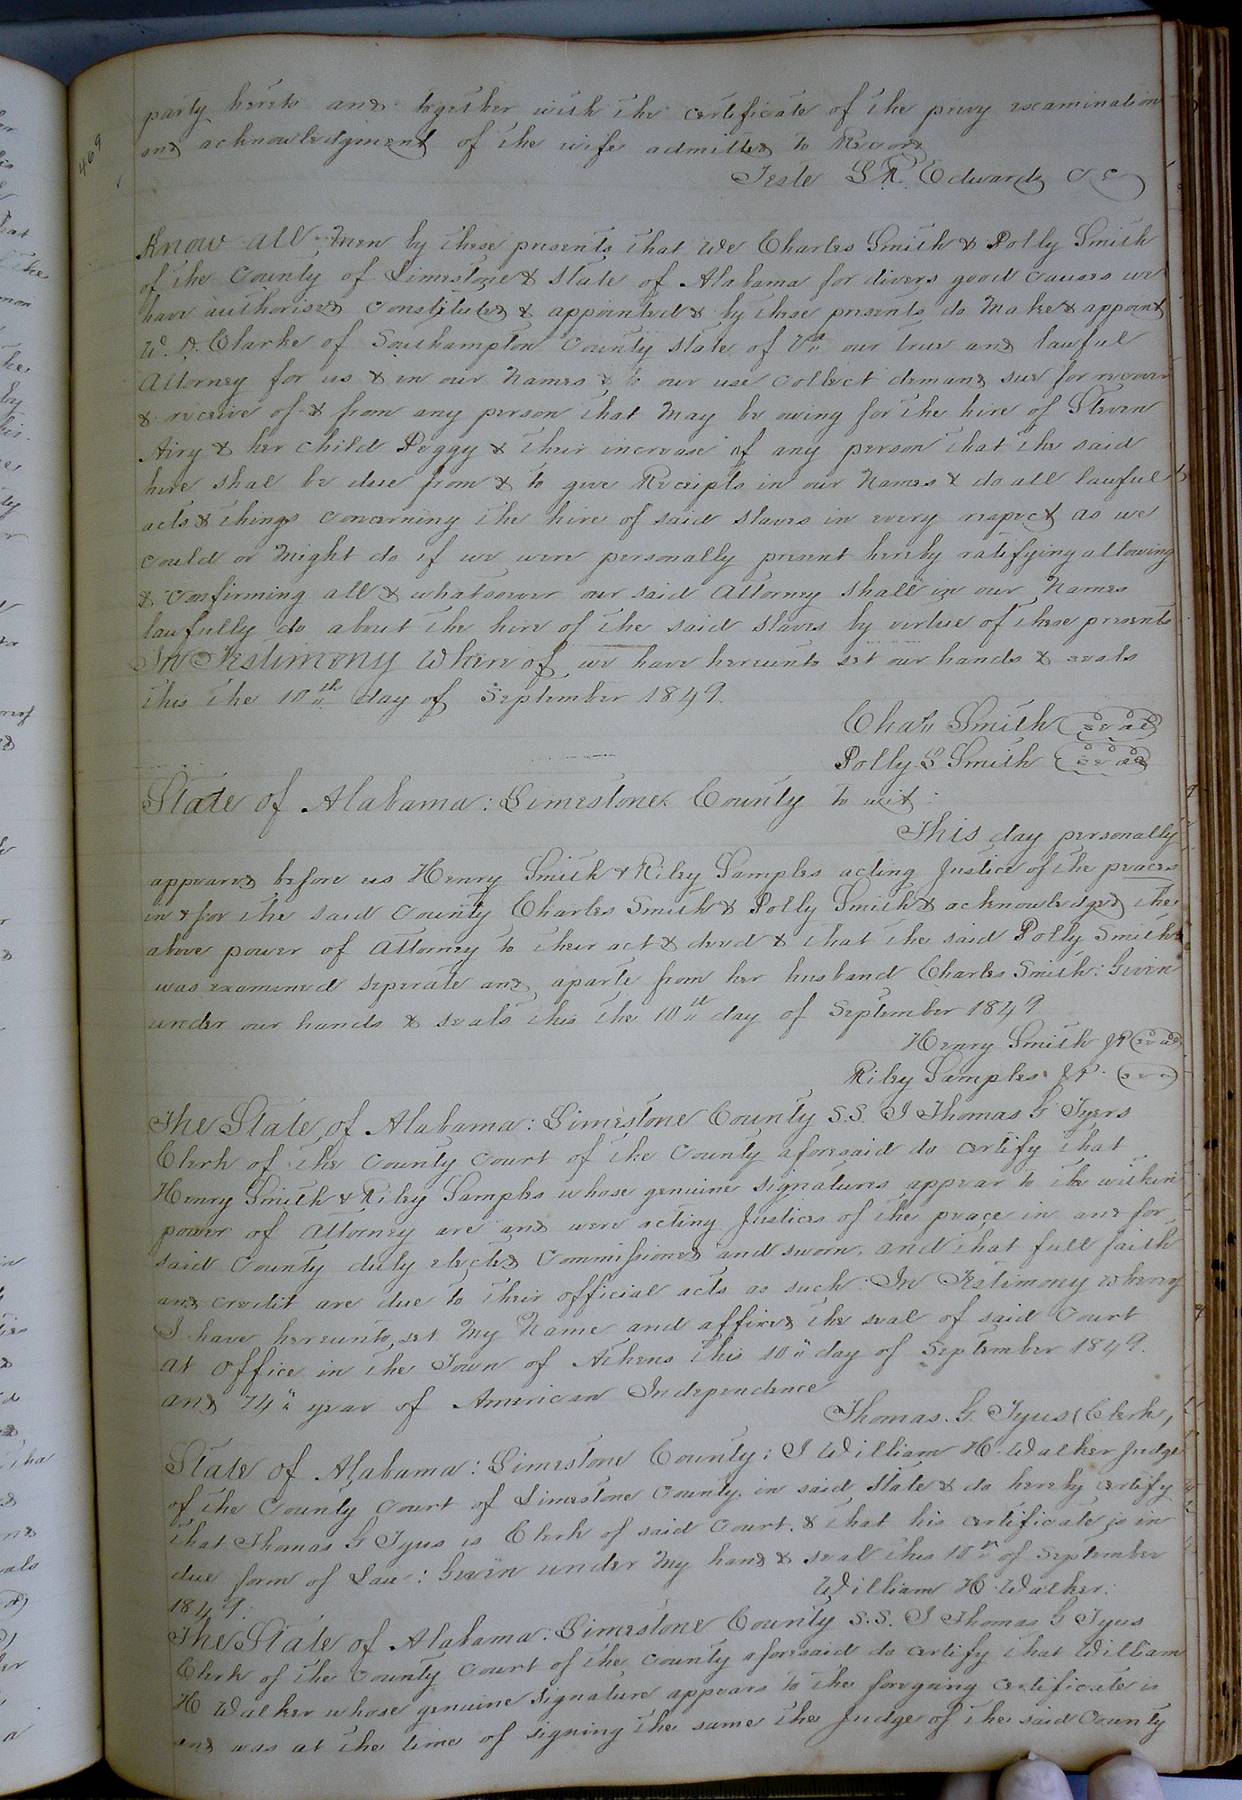 469
party hereto and together with the certificate of the privy examination
and acknowledgment of the wife admitted to Record
Teste L R. Edwards C C
Know all Men by these presents that We Charles Smith & Polly Smith
of the County of Limestone & State of Alabama for divers good causes we
have authorised Constituted & appointed & by these presents do Make & appoint
W. A. Clarke of Southampton County State of Va our true and lawful
Attorney for us & in our Names & to our use collect demand sue for recover
& receive of & from any person that May be owing for the hire of Steven
Airy & her child Peggy & their increase of any person that the said
hire shal be due from & to give Receipts in our Names & do all lawful
acts & things concerning the hire of said slaves in every respect as we
could or Might do if we were personally present hereby ratifying allowing
& confirming all & whatsoever our said Attorney shall in our Names
lawfully do about the hire of the said slaves by virtue of these presents
In Testimony Whereof we have hereunto set our hands & seals
this the 10th day of September 1849.
Chas Smith seal
Polly S Smith seal
State of Alabama: Limestone County to wit:
This day personally
appeared before us Henry Smith & Riley Samples acting Justice of the peaces
in & for the said County Charles Smith & Polly Smith & acknowledged the
above power of Attorney to their act & deed & that the said Polly Smith
was examined seperate and aparte from her husband Charles Smith: Given
under our hands & seals this the 10th day of September 1849
Henry Smith JP seal
Riley Samples JP. seal
The State of Alabama: Limestone County S.S. I Thomas G Tyers
Clerk of the County Court of the County aforesaid do certify that
Henry Smith & Riley Samples whose genuine signatures appear to the within
power of Attorney are and were acting Justices of the peace in and for
said County duly elected Commissioned and sworn, and that full faith
and credit are due to their official acts as such. In Testimony whereof
I have hereunto set My Name and affixed the seal of said Court
at office in the Town of Athens this 10" day of September 1849.
and 74" year of American Independence
Thomas. G. Tyus (Clerk,
State of Alabama: Limestone County; I William H. Walker Judge
of the County Court of Limestone County in said State & do hereby certify
that Thomas G Tyus is Clerk of said Court, & that his certificate is in
due form of Law: Given under My hand & seal this 10th of September
1849. William H. Walker.
The State of Alabama. Limestone County S.S. I Thomas G Tyus
Clerk of the County Court of the County aforesaid do certify that William
H Walker whose genuine signature appears to the foregoing certificate is
and was at the time of signing the same the Judge of the said County